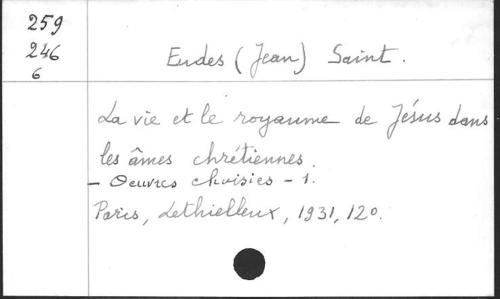 259
246
6
Eudes (Jean) Saint.
La vie et le royaume de Jésus dans
les âmes chrétiennes.
- Oeuvres choisies - 1.
Paris, Lethielleux, 1931, 12o.